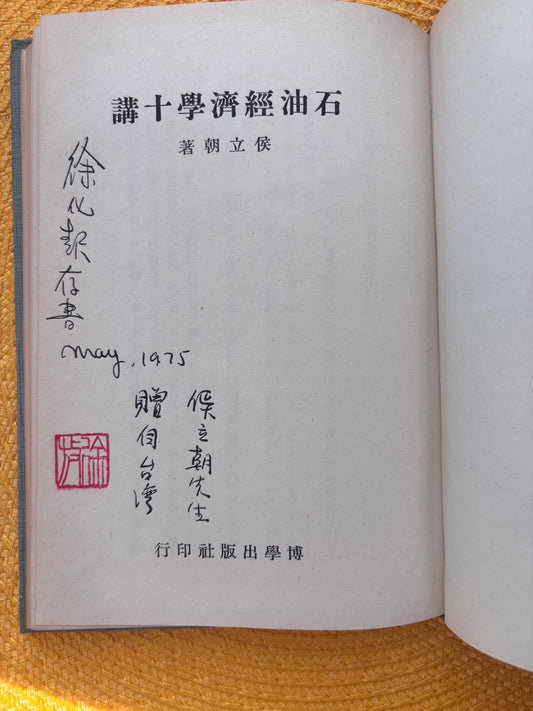 石油經濟學十講
侯立朝著
徐化存書
May, 1975
侯立朝先生
贈自台湾
徐
博學出版社印行